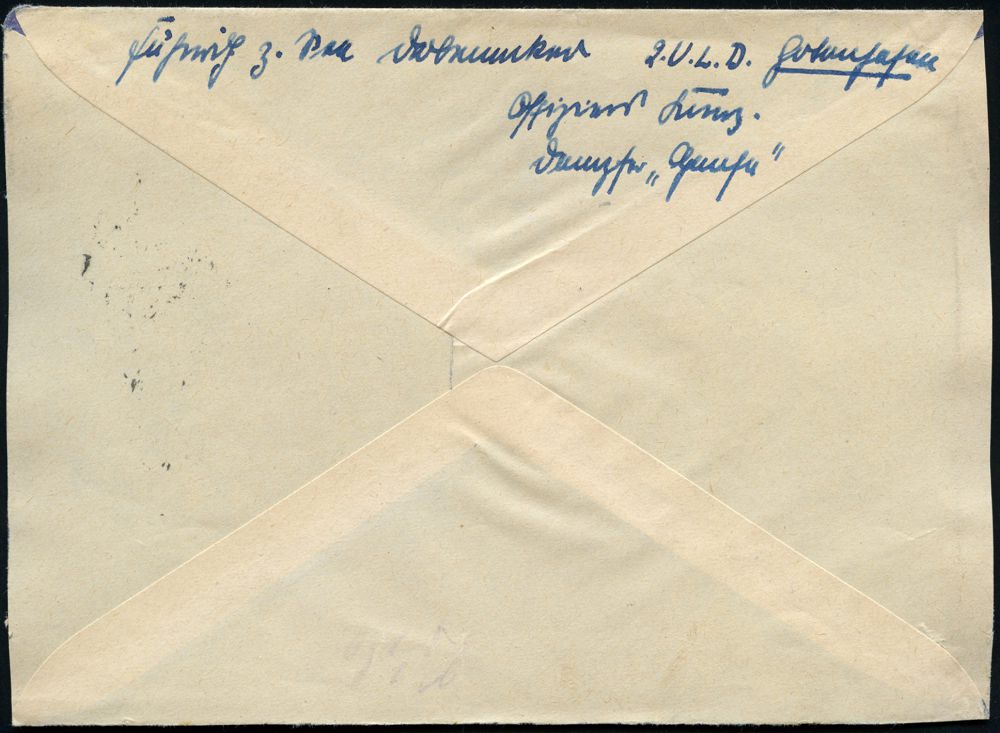 Fähnrich z. See Dabelunker 2.U.L.D. Gotenhafen
Offiziers
Dampfer „Hansa"